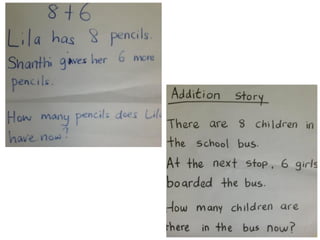 8+6
Lila has 8 pencils.
Shanthi gives her 6 more
pencils.
How many pencils does Lila
have now?
Addition story
There are 8 children in
the school bus.
At the next stop, 6 girls
boarded the bus.
How many children are
there in the bus now?